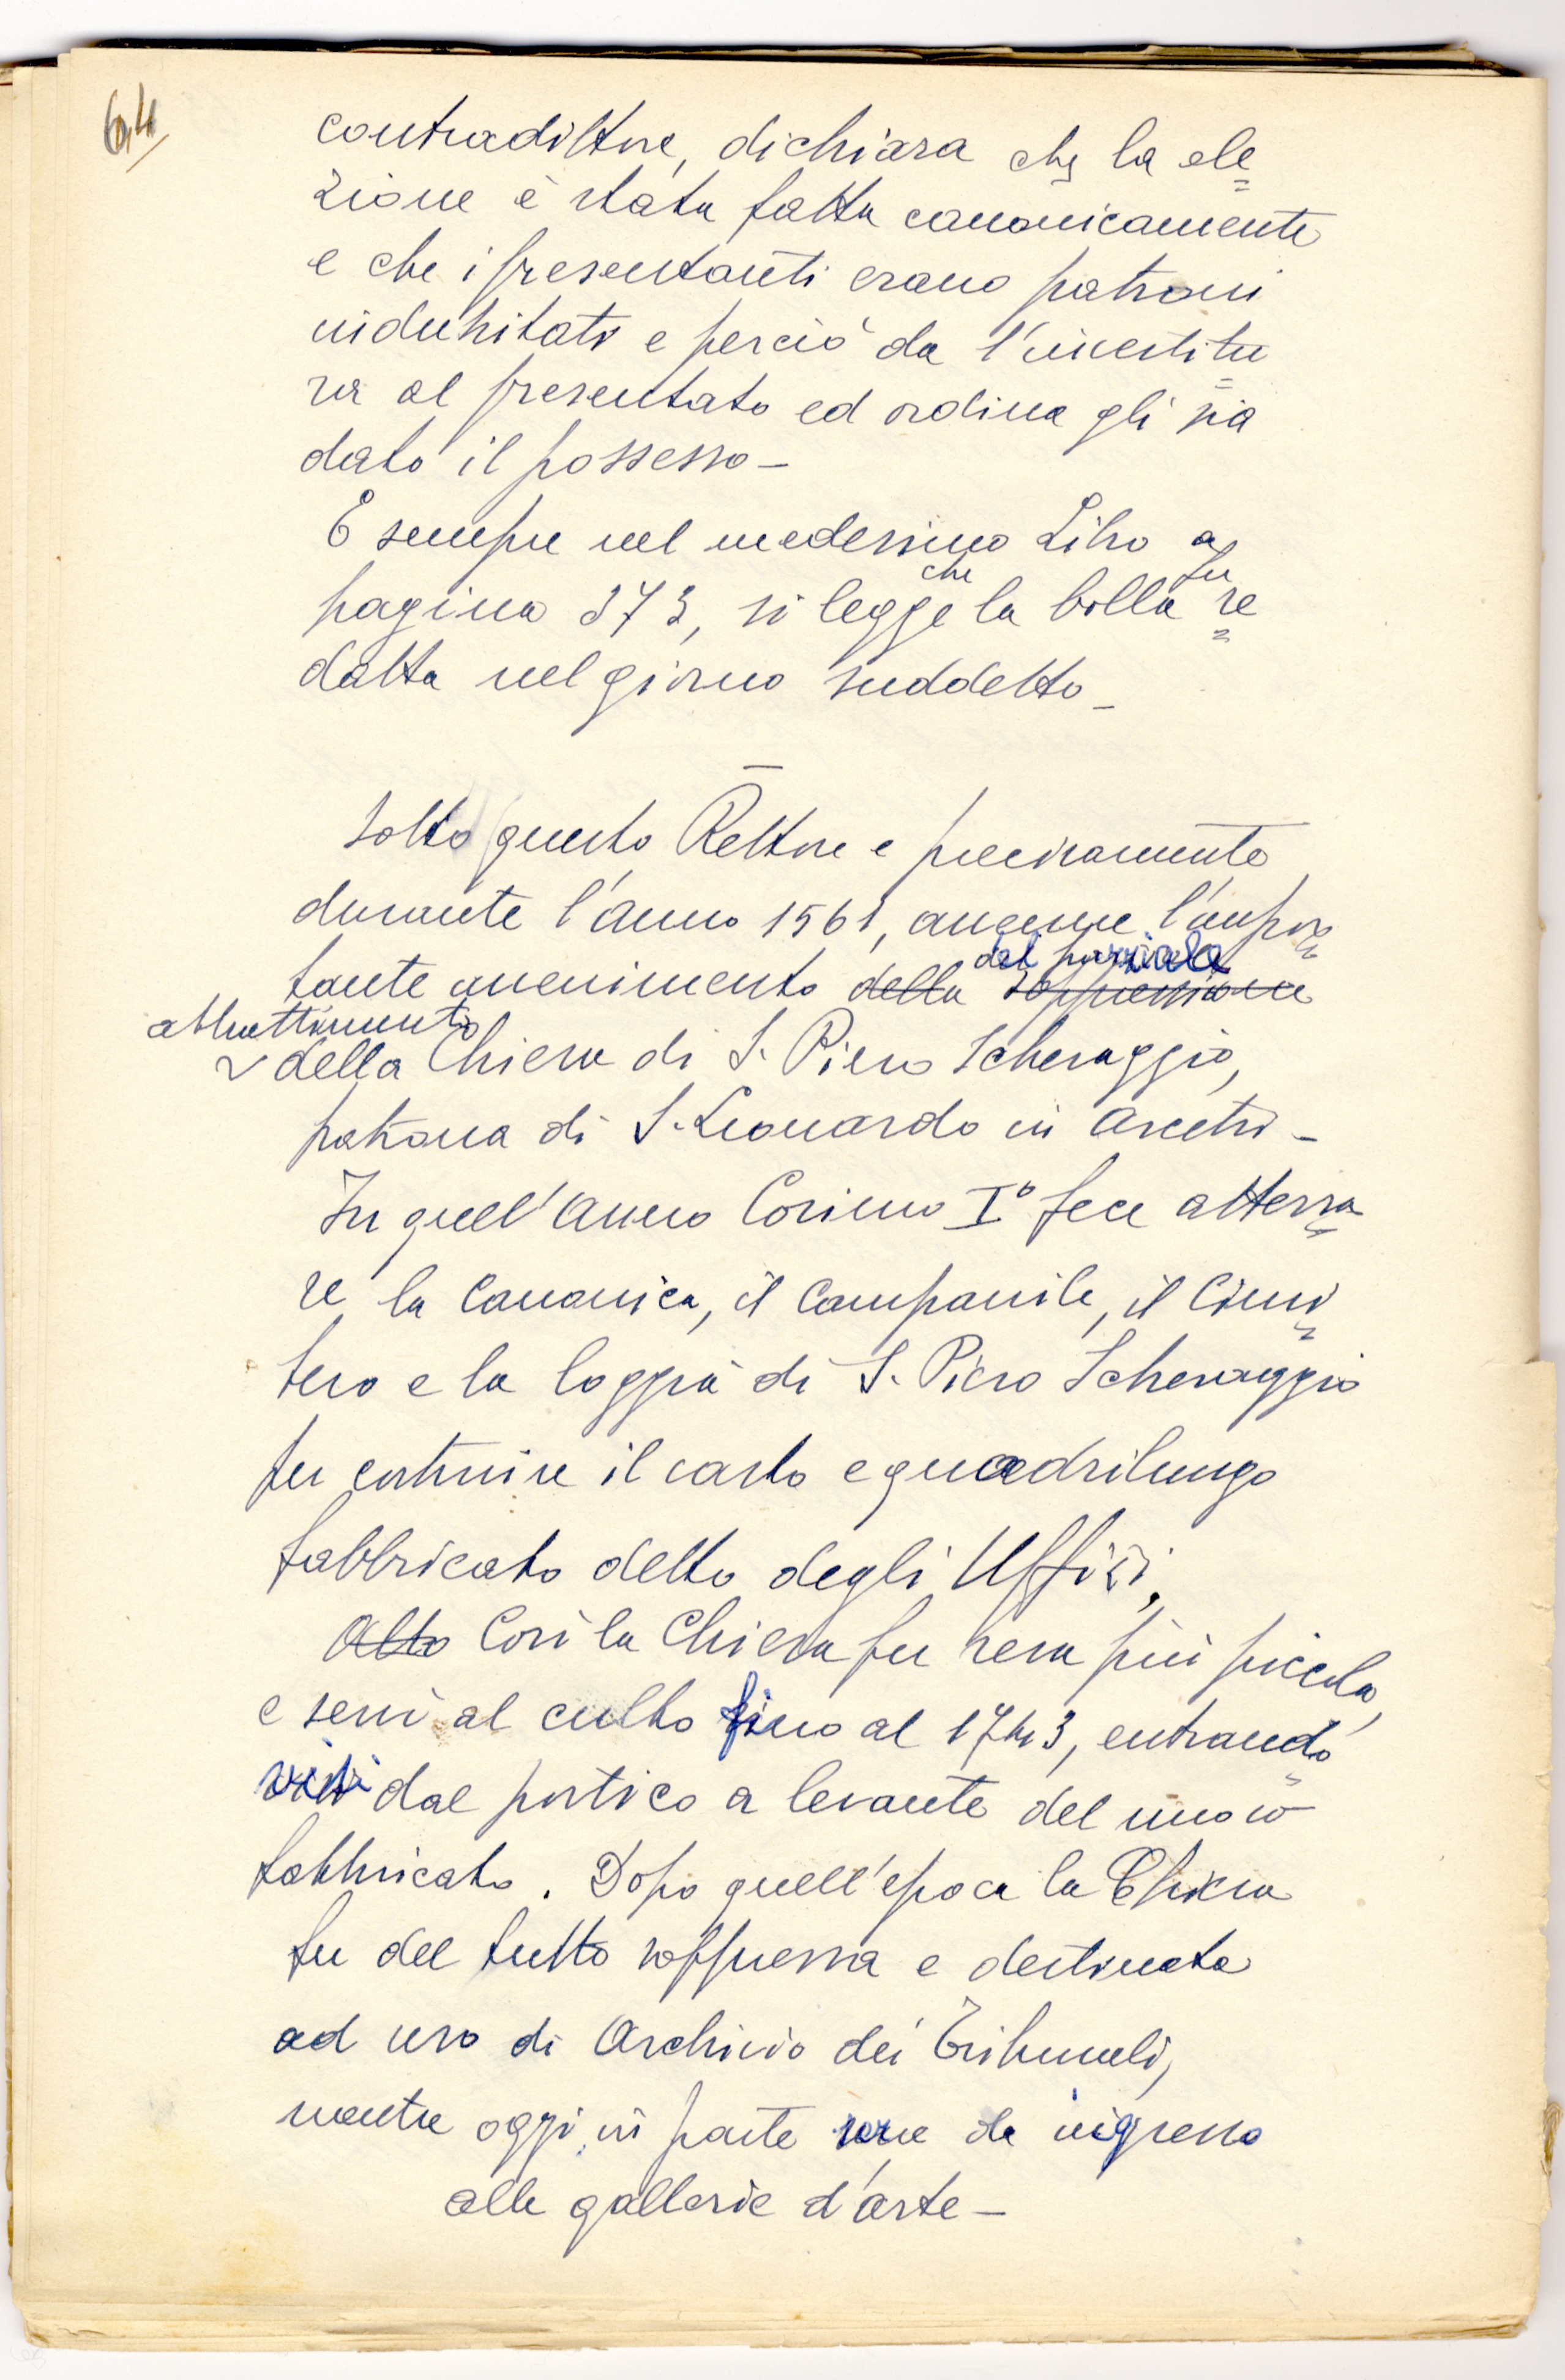 64
contradittore, dichiara che la ele=
zione è stata fatta canonicamente
e che i presentanti erano patroni
indubitati e perciò da l'investitu=
ra al presentato ed ordina gli sia
dato il possesso -
E sempre nel medesimo Libro a
pagina 373, si legge che la bolla fu re=
datta nel giorno suddetto -
Sotto questo Rettore e precisamente
durante l'anno 1561, avvenne l'impor=
tante avvenimento della soppressione del parziale
abbattimento
della Chiesa di S. Piero Scheraggio,
patrona di S. Leonardo in Arcetri -
In quell'anno Cosimo I° fece atterra=
re la Canonica, il Campanile, il Cimi=
tero e la loggia di S. Piero Scheraggio
per costruire il vasto e quadrilungo
fabbricato detto degli Uffizi.
Così la Chiesa fu resa più piccola,
e servì al culto fino al 1743, entrando=
visi dal portico a levante del nuovo
fabbricato. Dopo quell'epoca la Chiesa
fu del tutto soppressa e destinata
ad uso di Archivio dei Tribunali,
mentre oggi in parte serve da ingresso
alle gallerie d'arte -